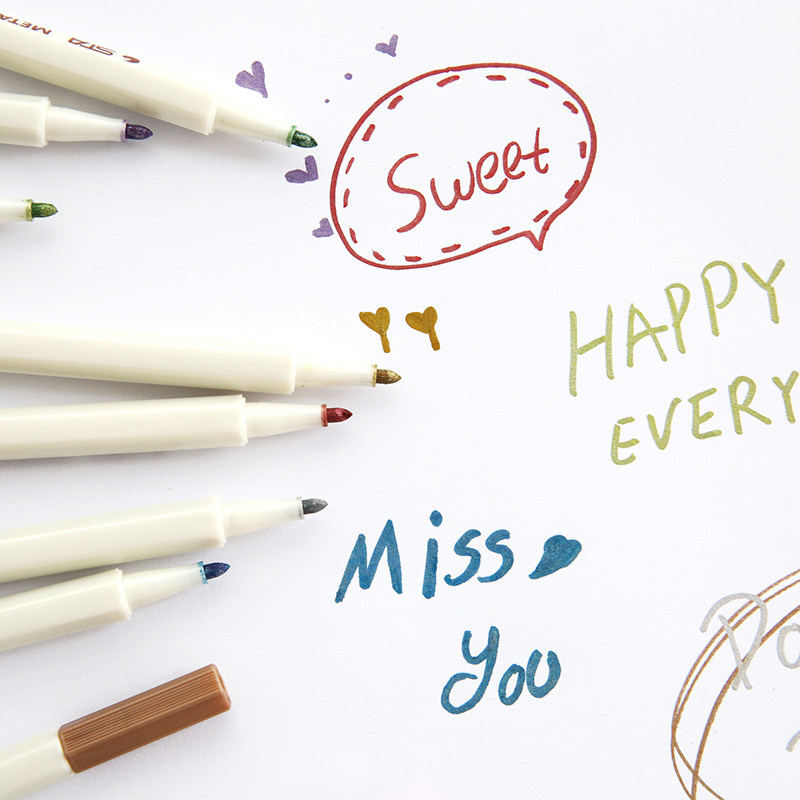 STA META
Sweet
HAPPY
EVERY
Miss
You